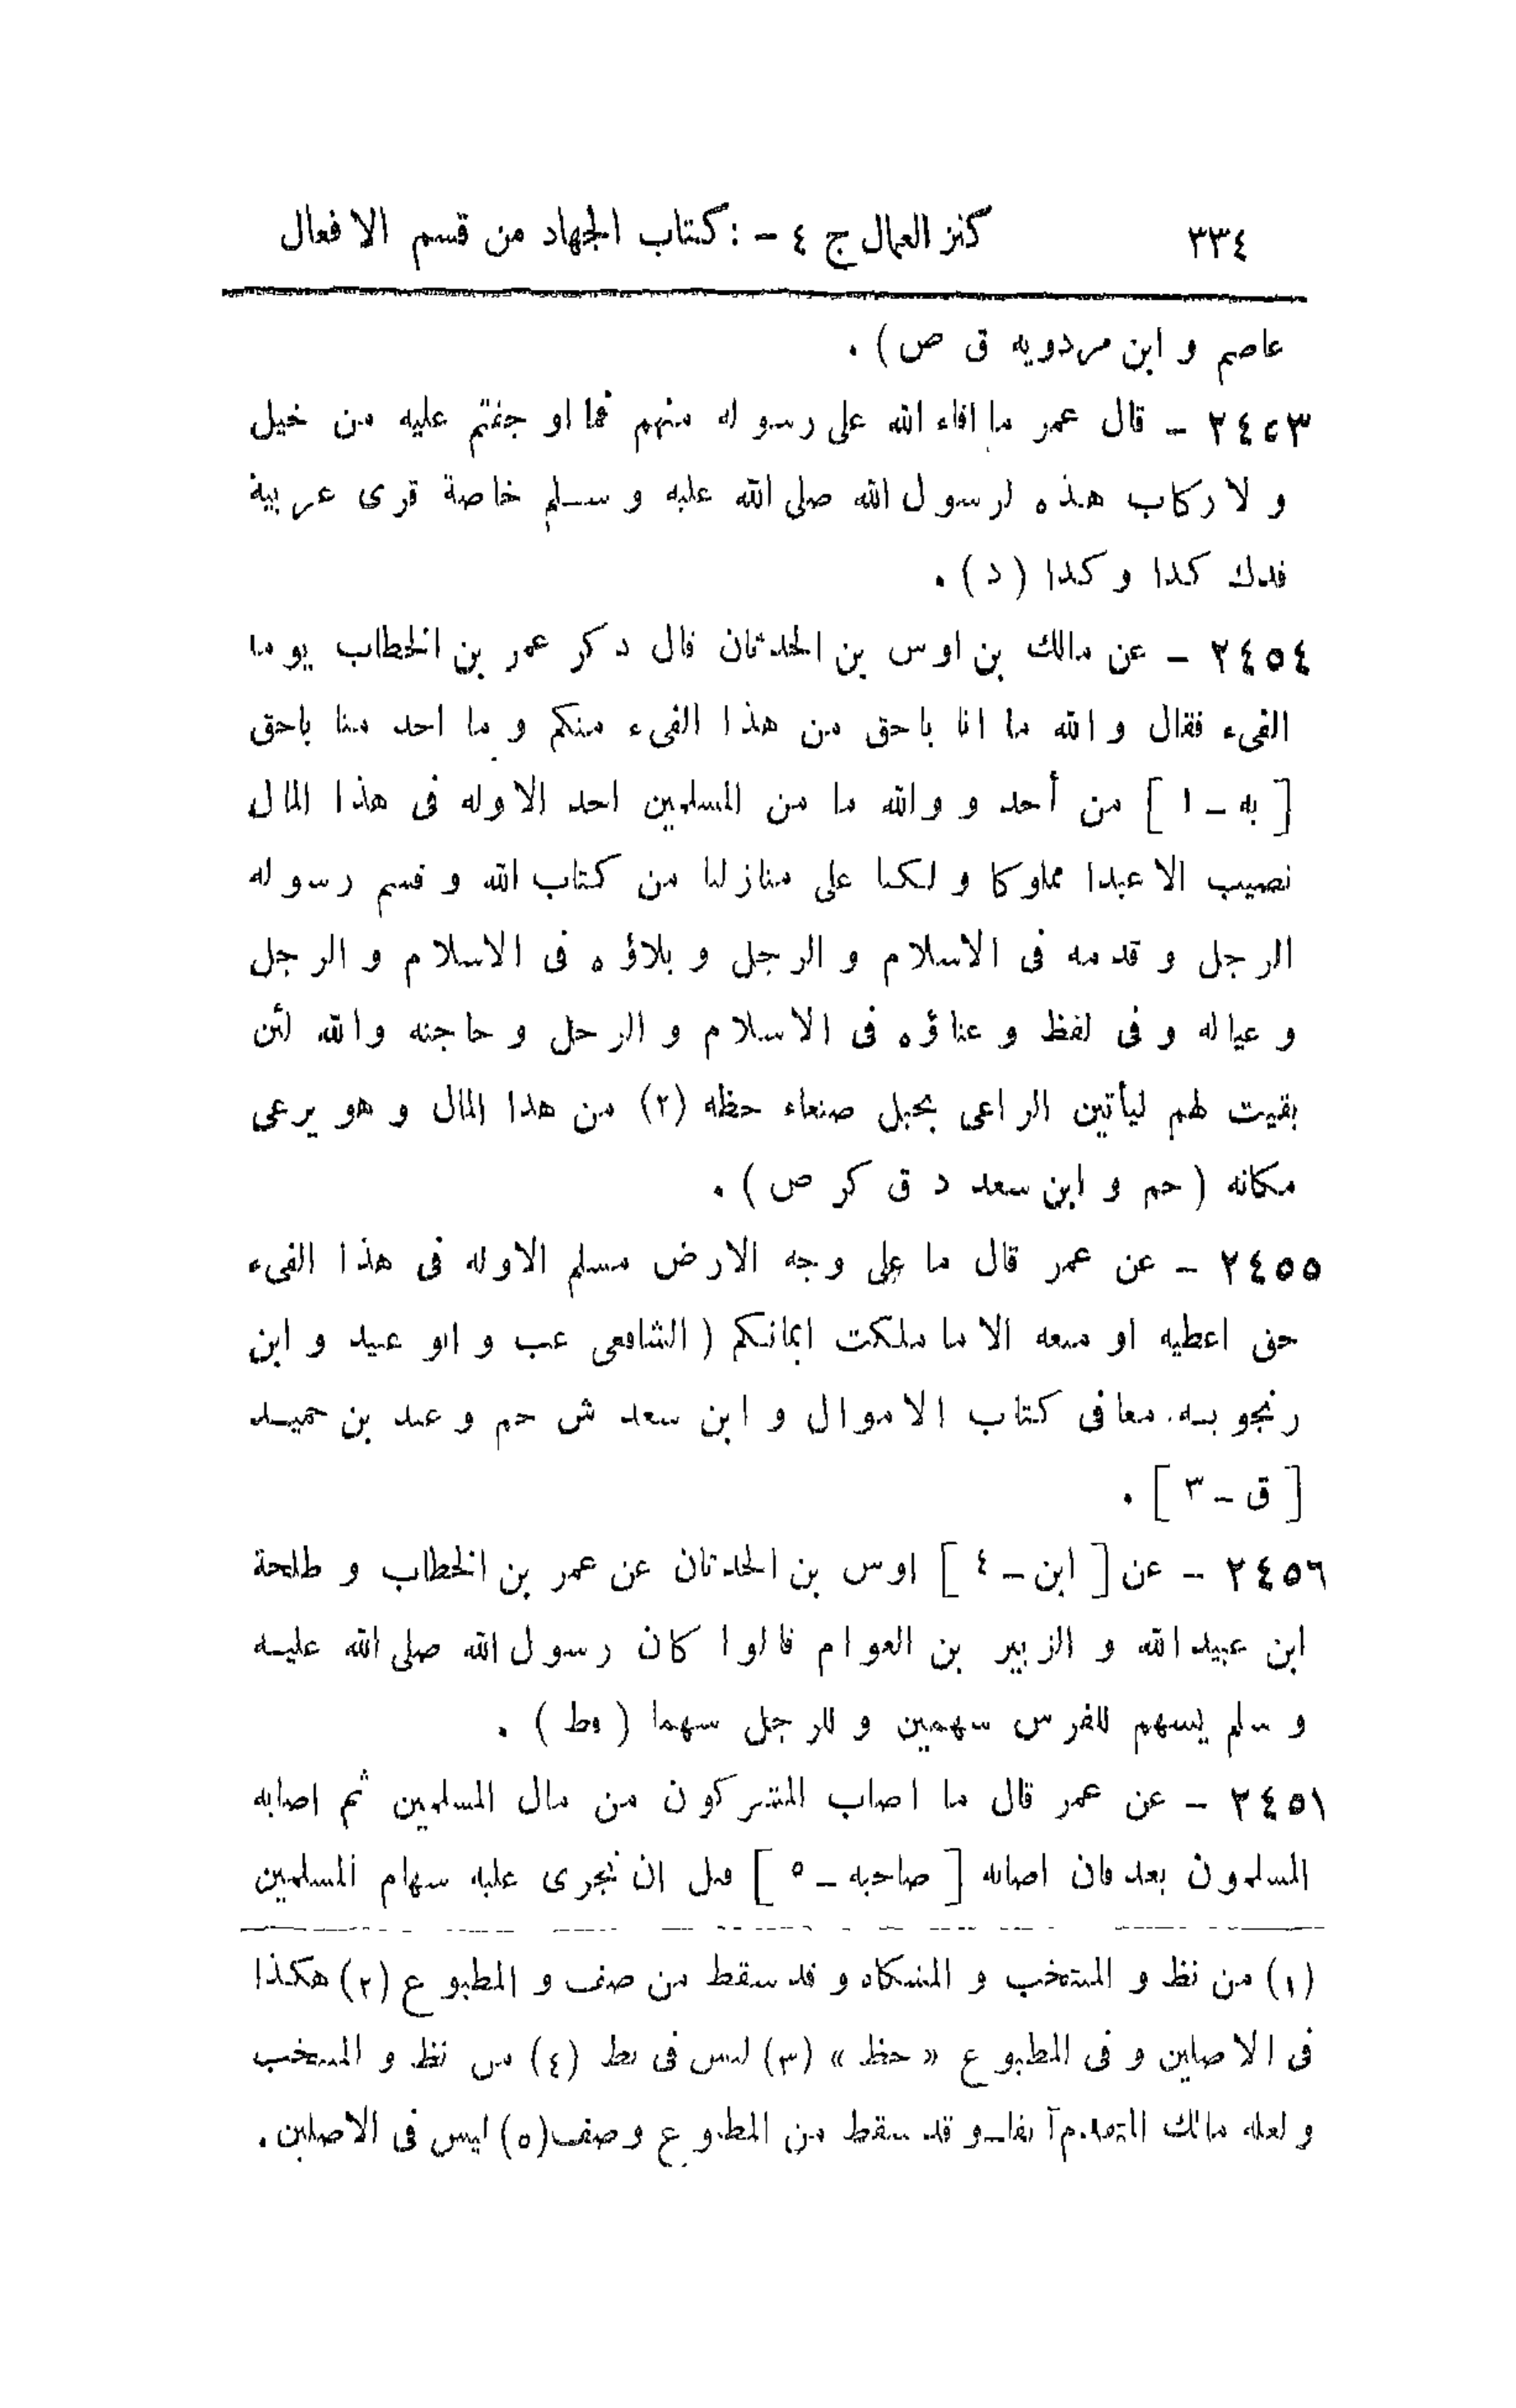 ٣٣٤ كنز العمال ج ٤ - : كتاب الجهاد من قسم الافعال
عاصم و ابن مردويه ق ص ) .
٢٤٥٣ - قال عمر ما افاء الله على رسوله منهم فما اوجفتم عليه من خيل
و لا ركاب هذه لرسول الله صلى الله عليه و سلم خاصة قرى عربية
فدك كذا و كذا ( د ) .
٢٤٥٤ - عن مالك بن اوس بن الحدثان قال ذكر عمر بن الخطاب يوما
الفىء فقال و الله ما انا باحق من هذا الفىء منكم و ما احد منا باحق
[ به - ١ ] من أحد و والله ما من المسلمين احد الا وله فى هذا المال
نصيب الا عبدا مملوكا و لكنا على منازلنا من كتاب الله و قسم رسوله
الرجل و قدمه فى الاسلام و الرجل و بلاؤه فى الاسلام و الرجل
و عياله و فى لفظ و عناؤه فى الاسلام و الرجل و حاجته والله لئن
بقيت لهم ليأتين الراعى بجبل صنعاء حظه (٢) من هذا المال و هو يرعى
مكانه ( حم و ابن سعد د ق كر ص ) .
٢٤٥٥ - عن عمر قال ما على وجه الارض مسلم الا وله فى هذا الفىء
حق اعطيه او منعه الا ما ملكت ايمانكم ( الشافعى عب و ابو عبيد و ابن
زنجويه معا فى كتاب الاموال و ابن سعد ش حم و عبد بن حميد
[ ق - ٣ ] .
٢٤٥٦ - عن [ ابن - ٤ ] اوس بن الحدثان عن عمر بن الخطاب و طلحة
ابن عبيد الله و الزبير بن العوام قالوا كان رسول الله صلى الله عليه
و سلم يسهم للفرس سهمين و للرجل سهما ( قط ) .
٢٤٥١ - عن عمر قال ما اصاب المشركون من مال المسلمين ثم اصابه
المسلمون بعد فان اصابه [ صاحبه - ٥ ] قبل ان تجرى عليه سهام المسلمين
(١) من نظ و المنتخب و المشكاه و قد سقط من صف و المطبوع (٢) هكذا
فى الاصلين و فى المطبوع « حظ » (٣) ليس فى نظ (٤) من نظ و المنتخب
و لعله مالك آنفا و قد سقط من المطبوع وصف (٥) ليس فى الاصلين .